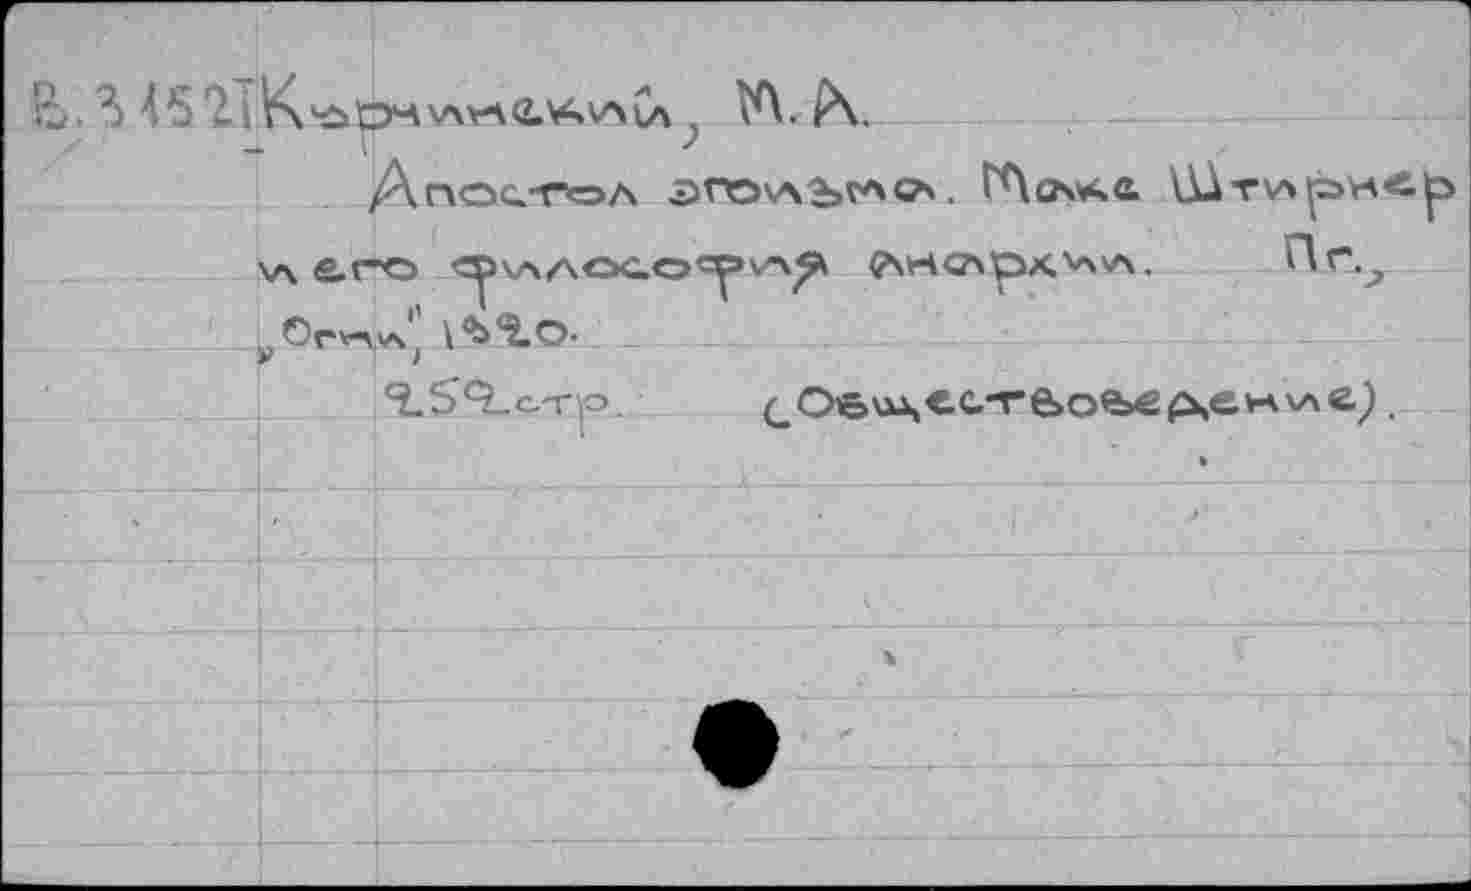 В. 3 4521 Курчинский, М. А.
Апостол эгоизма. Макс Штирнер
и его философия анархии. Пг.,
„Огни", 1920.
252 стр. (Обществоведение).